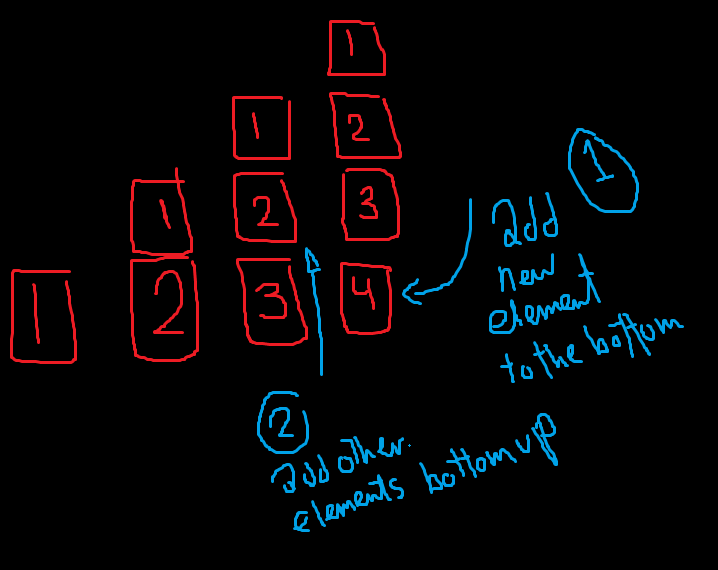 1
1 2
1 2 3
1 2 3 4
1
add
new
element
to the bottom
2
add other
elements bottom up